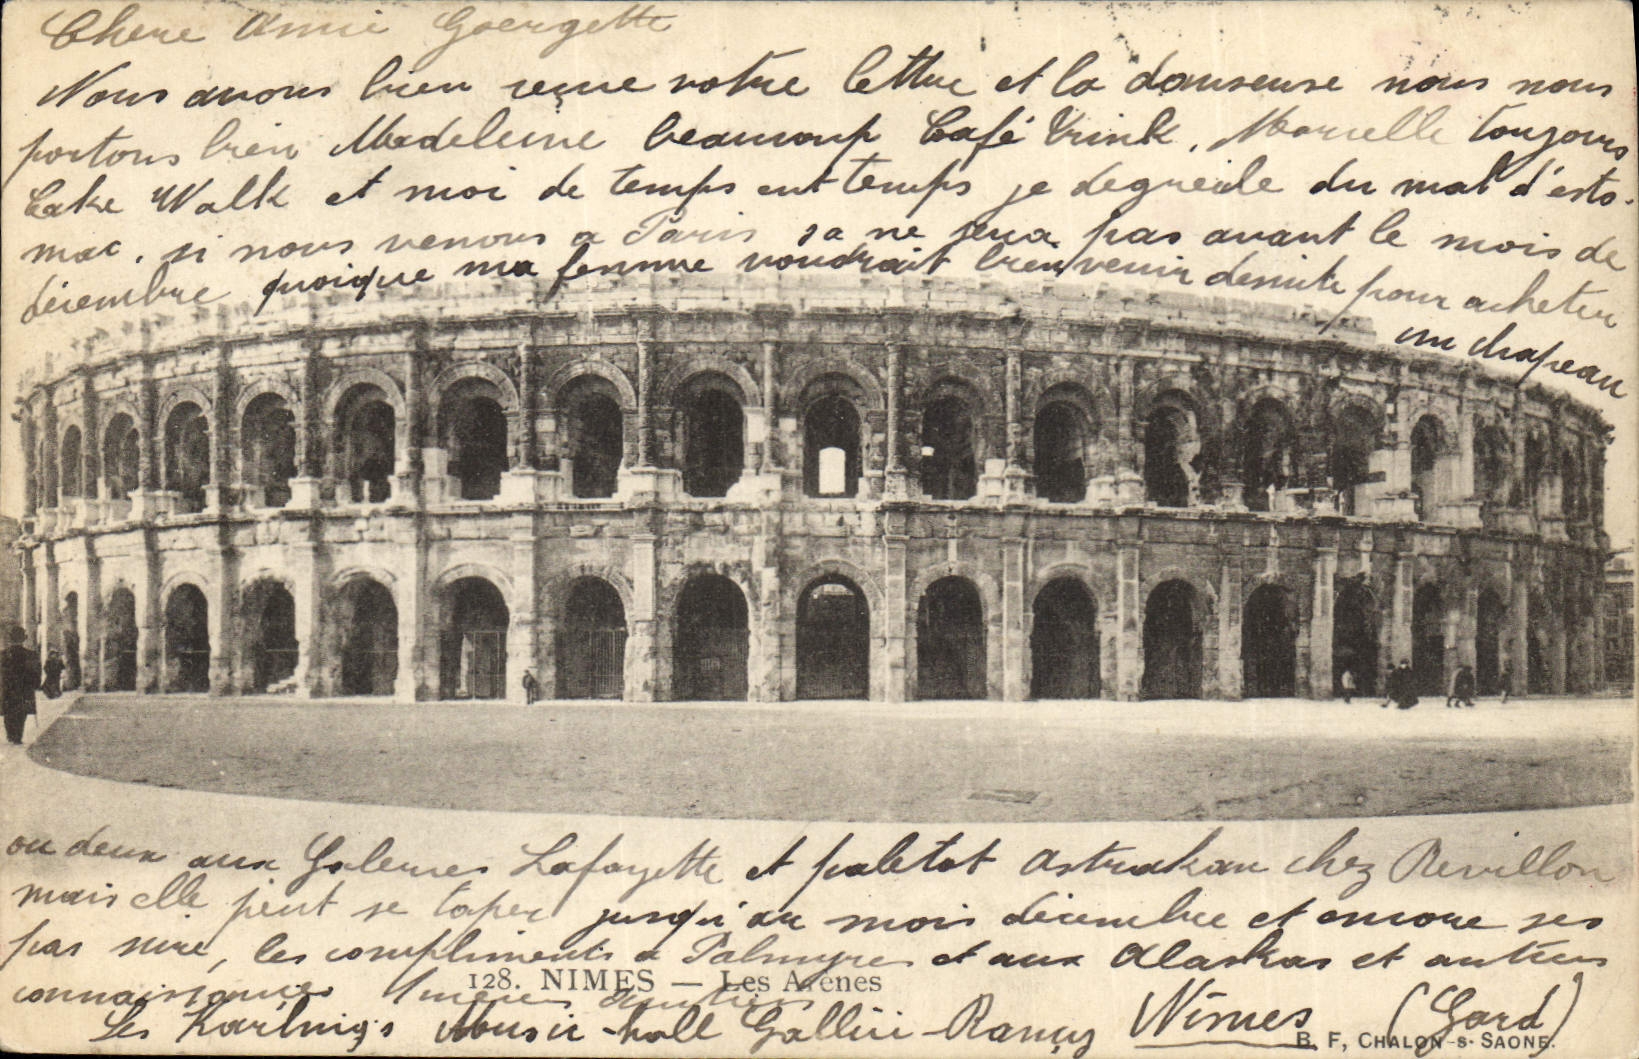 Chere Amie Goergette
Nous avons bien reçue votre lettre et la danseuse nous nous
portons bien Madeleine beaucoup Café Trink, Marcelle toujours
Cake Walk et moi de temps ent temps je degueule du mal d'esto-
mac, si nous venons a Paris sa ne sera pas avant le mois de
décembre quoique ma femme voudrait bien venir desuite pour acheter
un chapeau
ou deux aux Galeries Lafayette et paletot astrakan chez Revillon
mais elle peut se taper jusqu'au mois décembre et encore ses
pas sure, les compliments a Palmyre et aux Alaskas et autres
connaissances
128. NIMES — Les Arènes
Les Music-hall Gallici-Rancy Nîmes (Gard)
B. F, CHALON-S-SAONE.